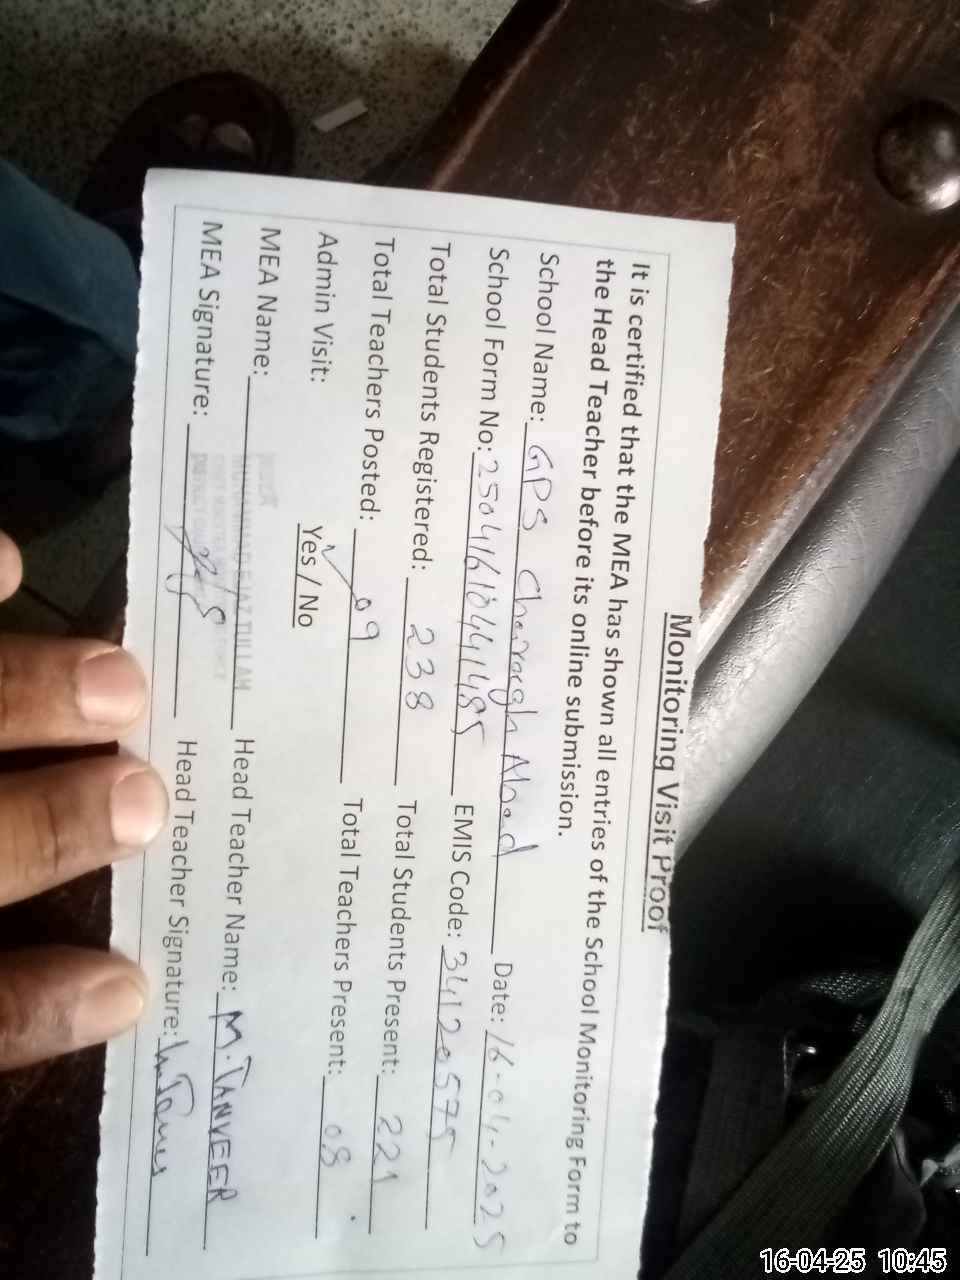 Monitoring Visit Proof
It is certified that the MEA has shown all entries of the School Monitoring Form to
the Head Teacher before its online submission.
School Name: GPS Charagh Abad Date: 16-04-2025
School Form No: EMIS Code: 34120575
Total Students Registered: 238 Total Students Present: 221
Total Teachers Posted: 09 Total Teachers Present: 08
Admin Visit: Yes / No
MEA Name: Head Teacher Name: M. TANVEER
MEA Signature: Head Teacher Signature:
16-04-25 10:45